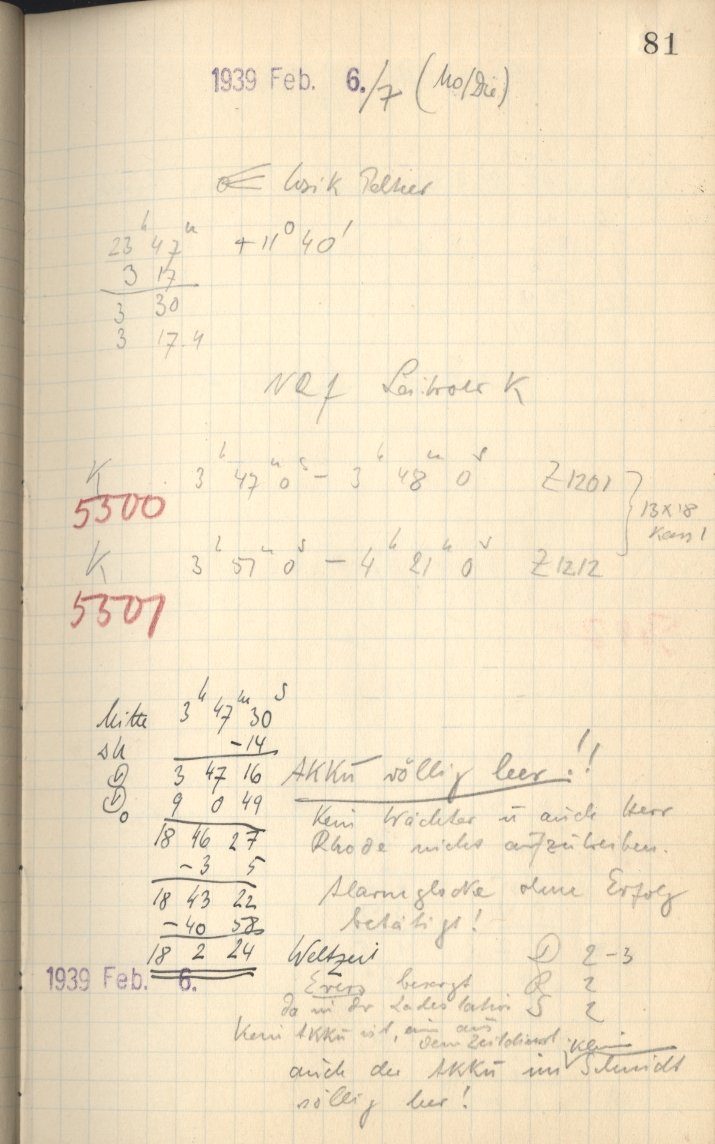 81
1939 Feb. 6./7 (Mo/Die)
23h 47m +11° 40'
3 17
3 30
3 17.4
K 3h 47m 0s - 3h 48m 0s Z1201
5300
13x18
K 3h 57m 0s - 4h 21m 0s Z1212
5301
Mitte 3h 47m 30s
-14
3 47 16
9 0 49
18 46 27
-3 5
18 43 22
-40 58
18 2 24
AKKu völlig leer!!
Kein Wächter u auch Herr
Rhode nicht aufzutreiben.
Alarmglocke ohne Erfolg
betätigt!
Weltzeit D 2-3
1939 Feb. 6.
besorgt R 2
da in der Ladestation S 2
Kein AKKu ist, ein aus
dem Zeitdienst. Kein
auch der AKKu im Schmidt
völlig leer!